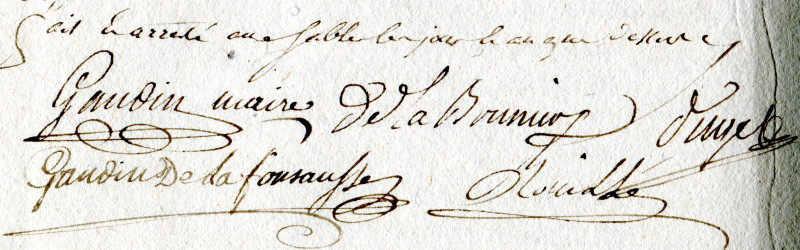 fait et arreté aux Sables les jour & an que dessus
Gaudin maire De La Bonnin Duget
Gaudin De La fonsausse Rouillé